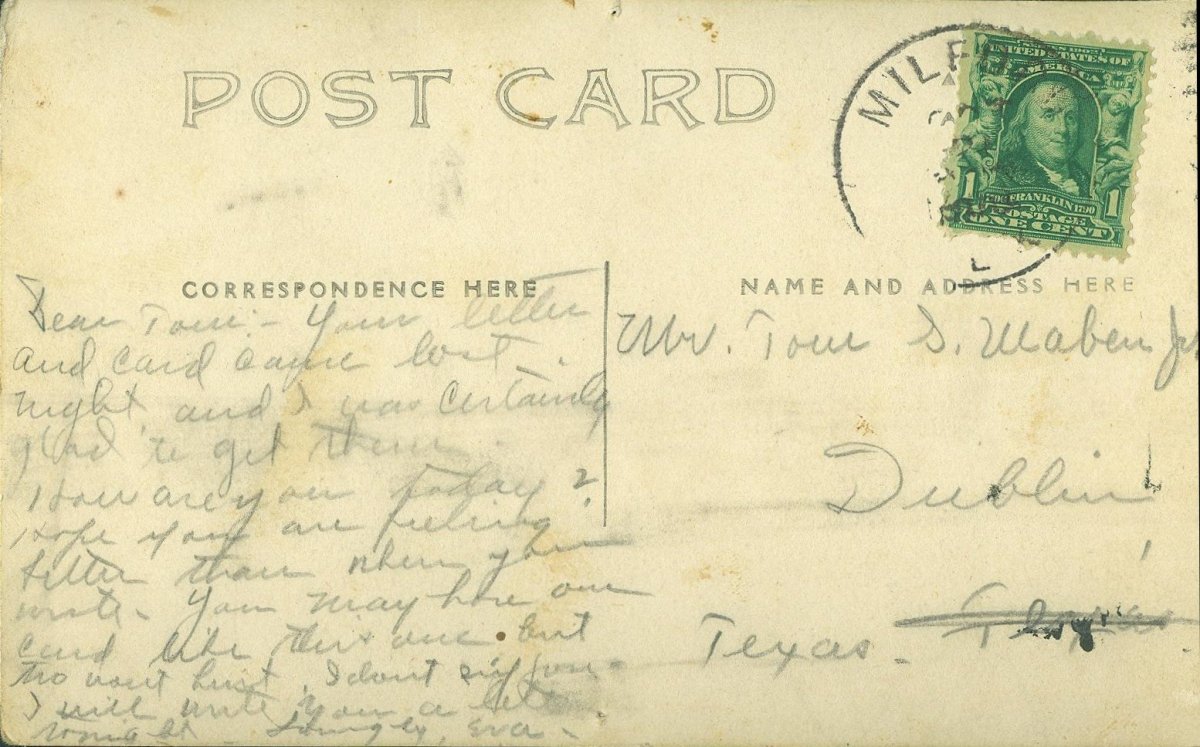 POST CARD
MILFO
SERIES 1902
UNITED STATES OF
AMERICA
1 FRANKLIN 1790 1
POSTAGE
ONE CENT
CORRESPONDENCE HERE
NAME AND ADDRESS HERE
Dear Tom:- Your letter
and card came last
night, and I was certainly
glad to get them.
How are you today?
Hope you are feeling
better than when you
wrote. You may have one
card like this one but
two wont hurt, I dont suppose
I will write you a letter
tonight. Lovingly, Eva-
Mr. Tom S. Maben Jr
Dublin
Texas-